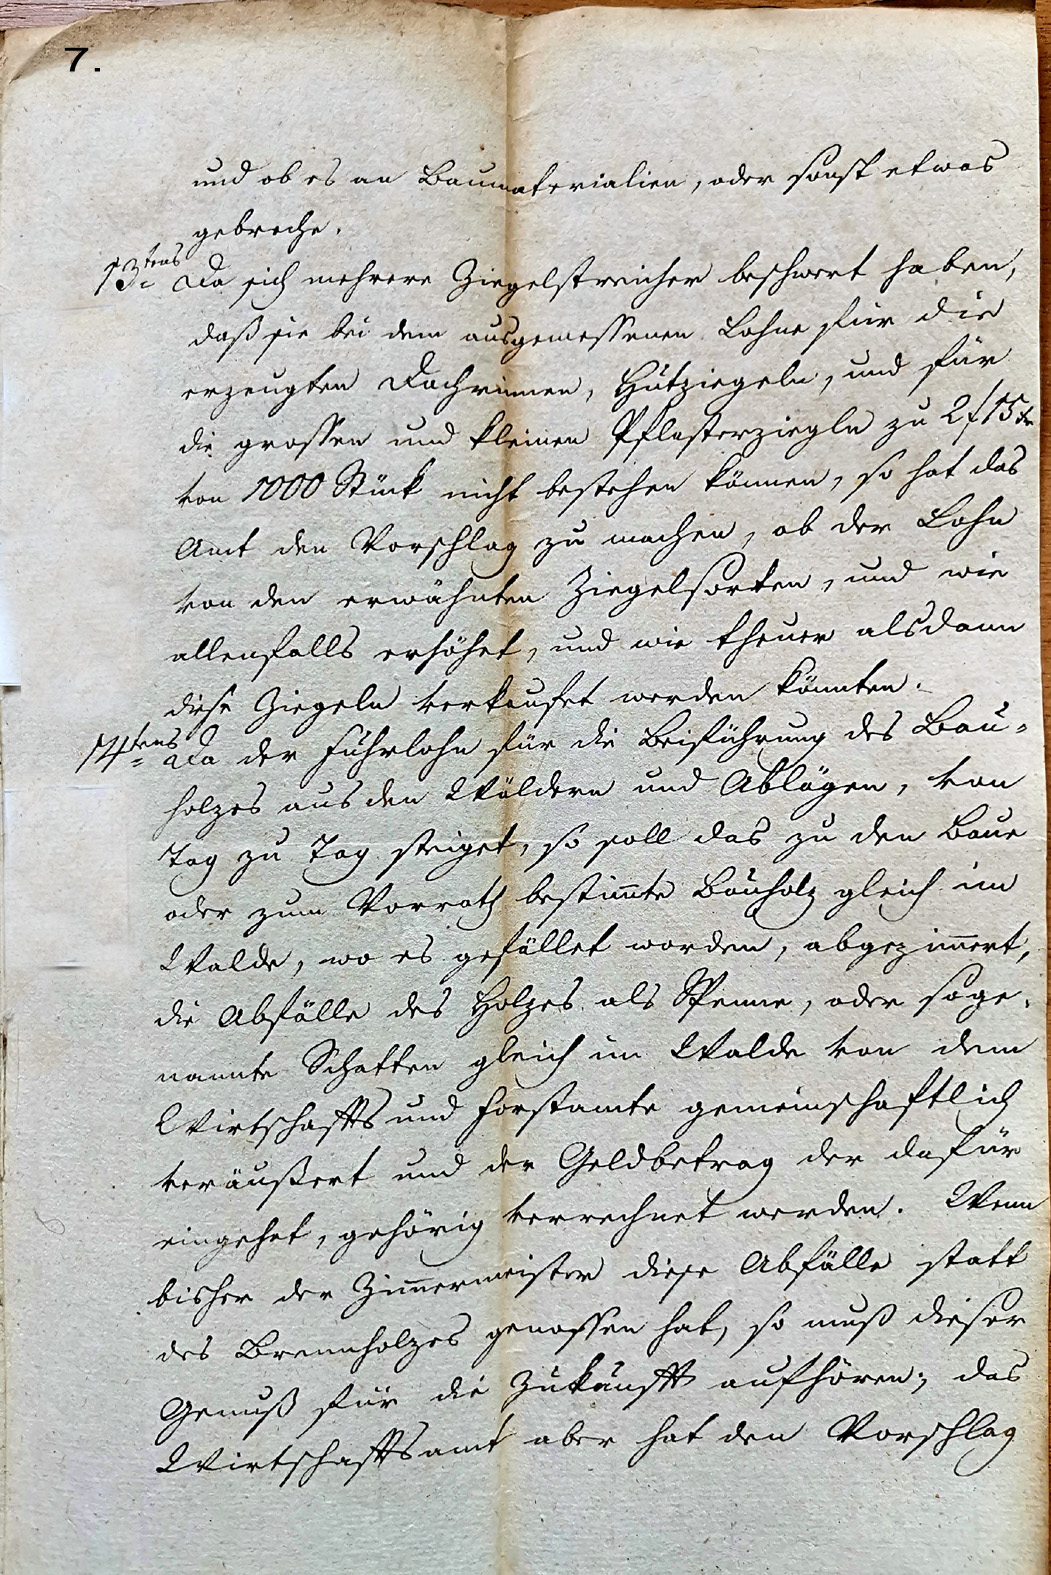 7.
und ob es an Baumaterialien, oder sonst etwas
gebreche.
13tens Da sich mehrere Ziegelstreicher beschwert haben,
daß sie bei dem ausgemessenen Lohne für die
erzeugten Dachrinnen, Hutziegeln, und für
die grossen und kleinen Pflasterziegeln zu 2f 15 kr
von 1000 Stück nicht bestehen können, so hat das
Amt den Vorschlag zu machen, ob der Lohn
von den erwähnten Ziegelsorten, und wie
allenfalls erhöhet, und wie theuer alsdann
diese Ziegeln verkaufet werden könnten.
14tens Da der Fuhrlohn für die Beiführung des Bau-
holzes aus den Wäldern und Ablägen, von
Tag zu Tag steiget, so soll das zu den Baue
oder zum Vorrath bestim̄te Bauholz gleich im
Walde, wo es gefället worden, abgezim̄ert,
die Abfälle des Holzes als Spenne, oder soge-
nannte Schatten gleich im Walde von dem
Wirtschafts und Forstamte gemeinschaftlich
veräußert und der Geldbetrag der dafür
eingehet, gehörig verrechnet werden. Wenn
bisher der Zim̄ermeister diese Abfälle statt
des Brennholzes genossen hat, so muß dieser
Genuß für die Zukunft aufhören; das
Wirtschaftsamt aber hat den Vorschlag